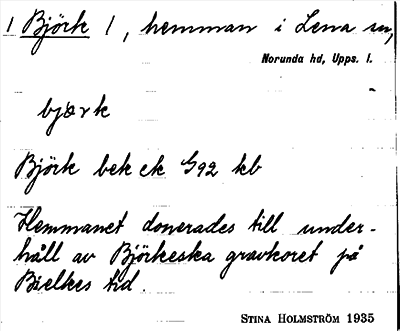 1 Björk 1, hemman i Lena sn,
Norunda hd, Upps. l.
bjærk
Björk bek ek G92 kb
Hemmanet donerades till under-
håll av Björkeska gravkoret på
Bielkes tid.
STINA HOLMSTRÖM 1935